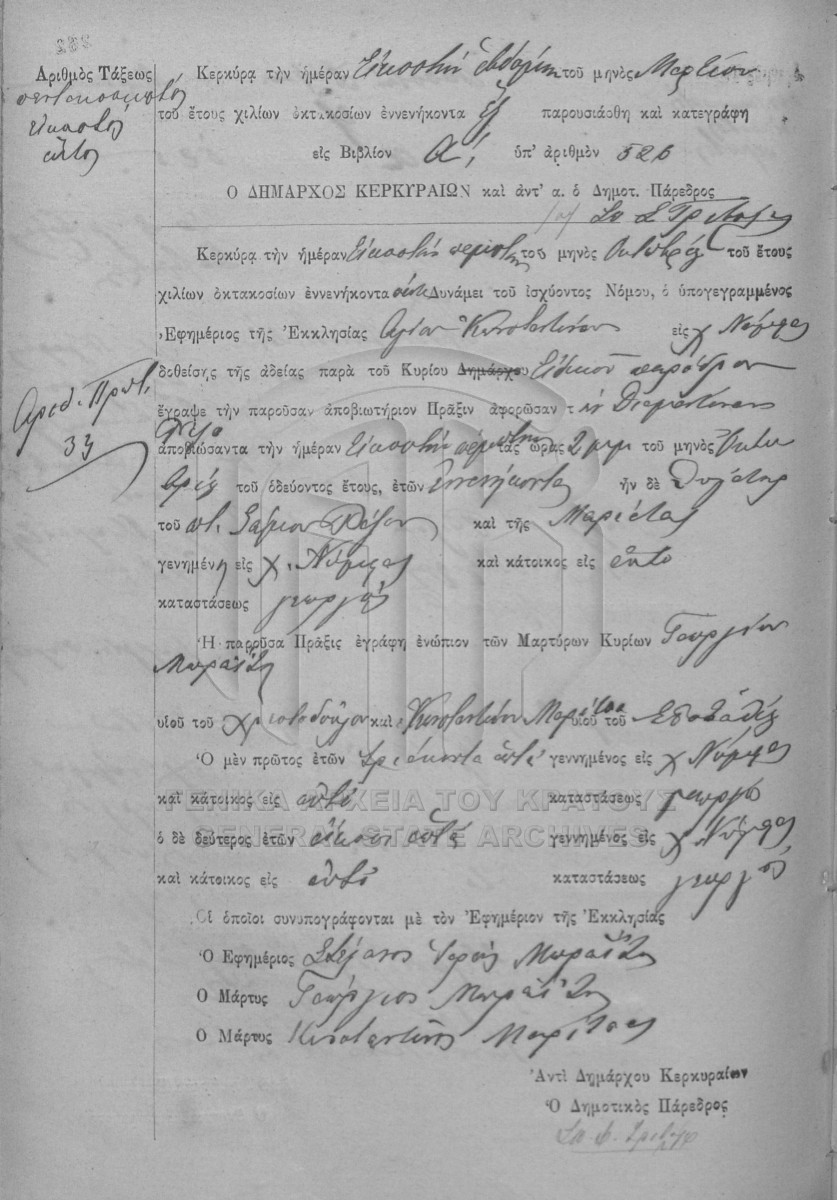 Ἀριθμὸς Τάξεως
πεντακοσιοστός
εἰκοστός
ἕκτος
Κερκύρᾳ τὴν ἡμέραν Εἰκοστὴν ἑβδόμην τοῦ μηνὸς Μαρτίου
τοῦ ἔτους χιλίων ὀκτακοσίων ἐννενήκοντα ἕξ παρουσιάσθη καὶ κατεγράφη
εἰς Βιβλίον Α΄, ὑπ' ἀριθμὸν 526
Ο ΔΗΜΑΡΧΟΣ ΚΕΡΚΥΡΑΙΩΝ καὶ ἀντ' α. ὁ Δημοτ. Πάρεδρος
Κερκύρᾳ τὴν ἡμέραν Εἰκοστὴν πέμπτην τοῦ μηνὸς Ὀκτωβρίου τοῦ ἔτους
χιλίων ὀκτακοσίων ἐννενήκοντα Δυνάμει τοῦ ἰσχύοντος Νόμου, ὁ ὑπογεγραμμένος
Ἐφημέριος τῆς Ἐκκλησίας Ἁγίου Κωνσταντίνου εἰς χ Νύμφας
δοθείσης τῆς ἀδείας παρὰ τοῦ Κυρίου Δημάρχου Εἰδικοῦ παρέδρου
Ἀριθ. Πρωτ.
33
ἔγραψε τὴν παροῦσαν ἀποβιωτήριον Πρᾶξιν ἀφορῶσαν τὴν
ἀποβιώσαντα τὴν ἡμέραν Εἰκοστὴν πέμπτην τὰς ὥρας 2 μμ τοῦ μηνὸς Ὀκτω
βρίου τοῦ ὁδεύοντος ἔτους, ἐτῶν ἐννενήκοντα ἦν δὲ θυγάτηρ
τοῦ ποτ. καὶ τῆς Μαριέτας
γενημένη εἰς χ. Νύμφας καὶ κάτοικος εἰς αὐτὸ
καταστάσεως γεωργὸς
Ἡ παροῦσα Πρᾶξις ἐγράφη ἐνώπιον τῶν Μαρτύρων Κυρίων Γεωργίου
Μωραΐτη
υἱοῦ τοῦ Χριστοδούλου καὶ Κωνσταντίνου Μαρίτσα υἱοῦ τοῦ
Ὁ μὲν πρῶτος ἐτῶν τριάκοντα ὀκτὼ γεννημένος εἰς χ Νύμφας
καὶ κάτοικος εἰς αὐτὸ καταστάσεως γεωργὸς
ὁ δὲ δεύτερος ἐτῶν εἴκοσι ὀκτὼ γεννημένος εἰς χ Νύμφας
καὶ κάτοικος εἰς αὐτὸ καταστάσεως γεωργὸς
Οἱ ὁποῖοι συνυπογράφονται μὲ τὸν Ἐφημέριον τῆς Ἐκκλησίας
Ὁ Ἐφημέριος Στέφανος Ἱερεὺς Μωραΐτης
Ὁ Μάρτυς Γεώργιος Μωραΐτης
Ὁ Μάρτυς Κωνσταντῖνος Μαρίτσας
Ἀντὶ Δημάρχου Κερκυραίων
Ὁ Δημοτικὸς Πάρεδρος
ΓΕΝΙΚΑ ΑΡΧΕΙΑ ΤΟΥ ΚΡΑΤΟΥΣ
GENERAL STATE ARCHIVES